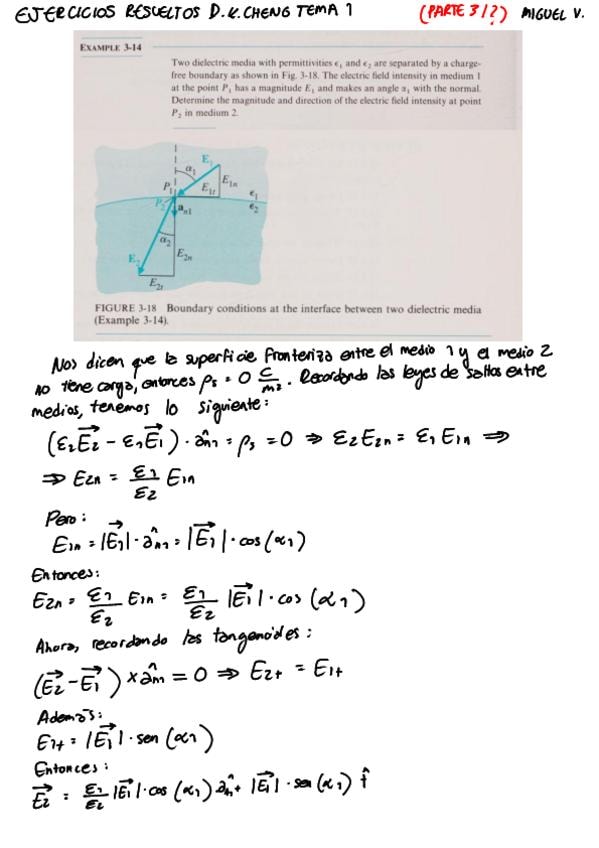 EJERCICIOS RESUELTOS D.K.CHENG TEMA 1 (PARTE 3/?) MIGUEL V.
EXAMPLE 3-14
Two dielectric media with permittivities ϵ₁ and ϵ₂ are separated by a charge-
free boundary as shown in Fig. 3-18. The electric field intensity in medium 1
at the point P₁ has a magnitude E₁ and makes an angle α₁ with the normal.
Determine the magnitude and direction of the electric field intensity at point
P₂ in medium 2.
α₁ E₁
E₁ₙ
P₁ E₁ₜ ϵ₁
P₂ aₙ₁ ϵ₂
α₂
E₂ E₂ₙ
E₂ₜ
FIGURE 3-18 Boundary conditions at the interface between two dielectric media
(Example 3-14).
Nos dicen que la superficie fronteriza entre el medio 1 y el medio 2
no tiene carga, entonces ρₛ = 0 C/m². Recordando las leyes de saltos entre
medios, tenemos lo siguiente:
(ε₂E⃗₂ - ε₁E⃗₁) · âₙ₁ = ρₛ = 0 ⇒ ε₂E₂ₙ = ε₁E₁ₙ ⇒
⇒ E₂ₙ = ε₁/ε₂ E₁ₙ
Pero:
E₁ₙ = |E⃗₁| · âₙ₁ = |E⃗₁| · cos(α₁)
Entonces:
E₂ₙ = ε₁/ε₂ E₁ₙ = ε₁/ε₂ |E⃗₁| · cos(α₁)
Ahora, recordando las tangenciales:
(E⃗₂ - E⃗₁) × âₙ₁ = 0 ⇒ E₂ₜ = E₁ₜ
Además:
E₁ₜ = |E⃗₁| · sen(α₁)
Entonces:
E⃗₂ = ε₁/ε₂ |E⃗₁| · cos(α₁) âₙ + |E⃗₁| · sen(α₁) t̂